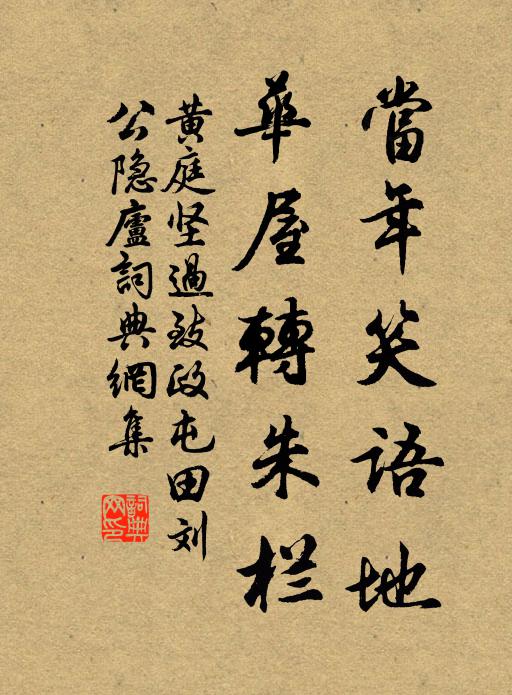 當年笑語地
華屋轉朱栏
黄庭坚過致政屯田刘
公隐廬詞典網集
詞典網印